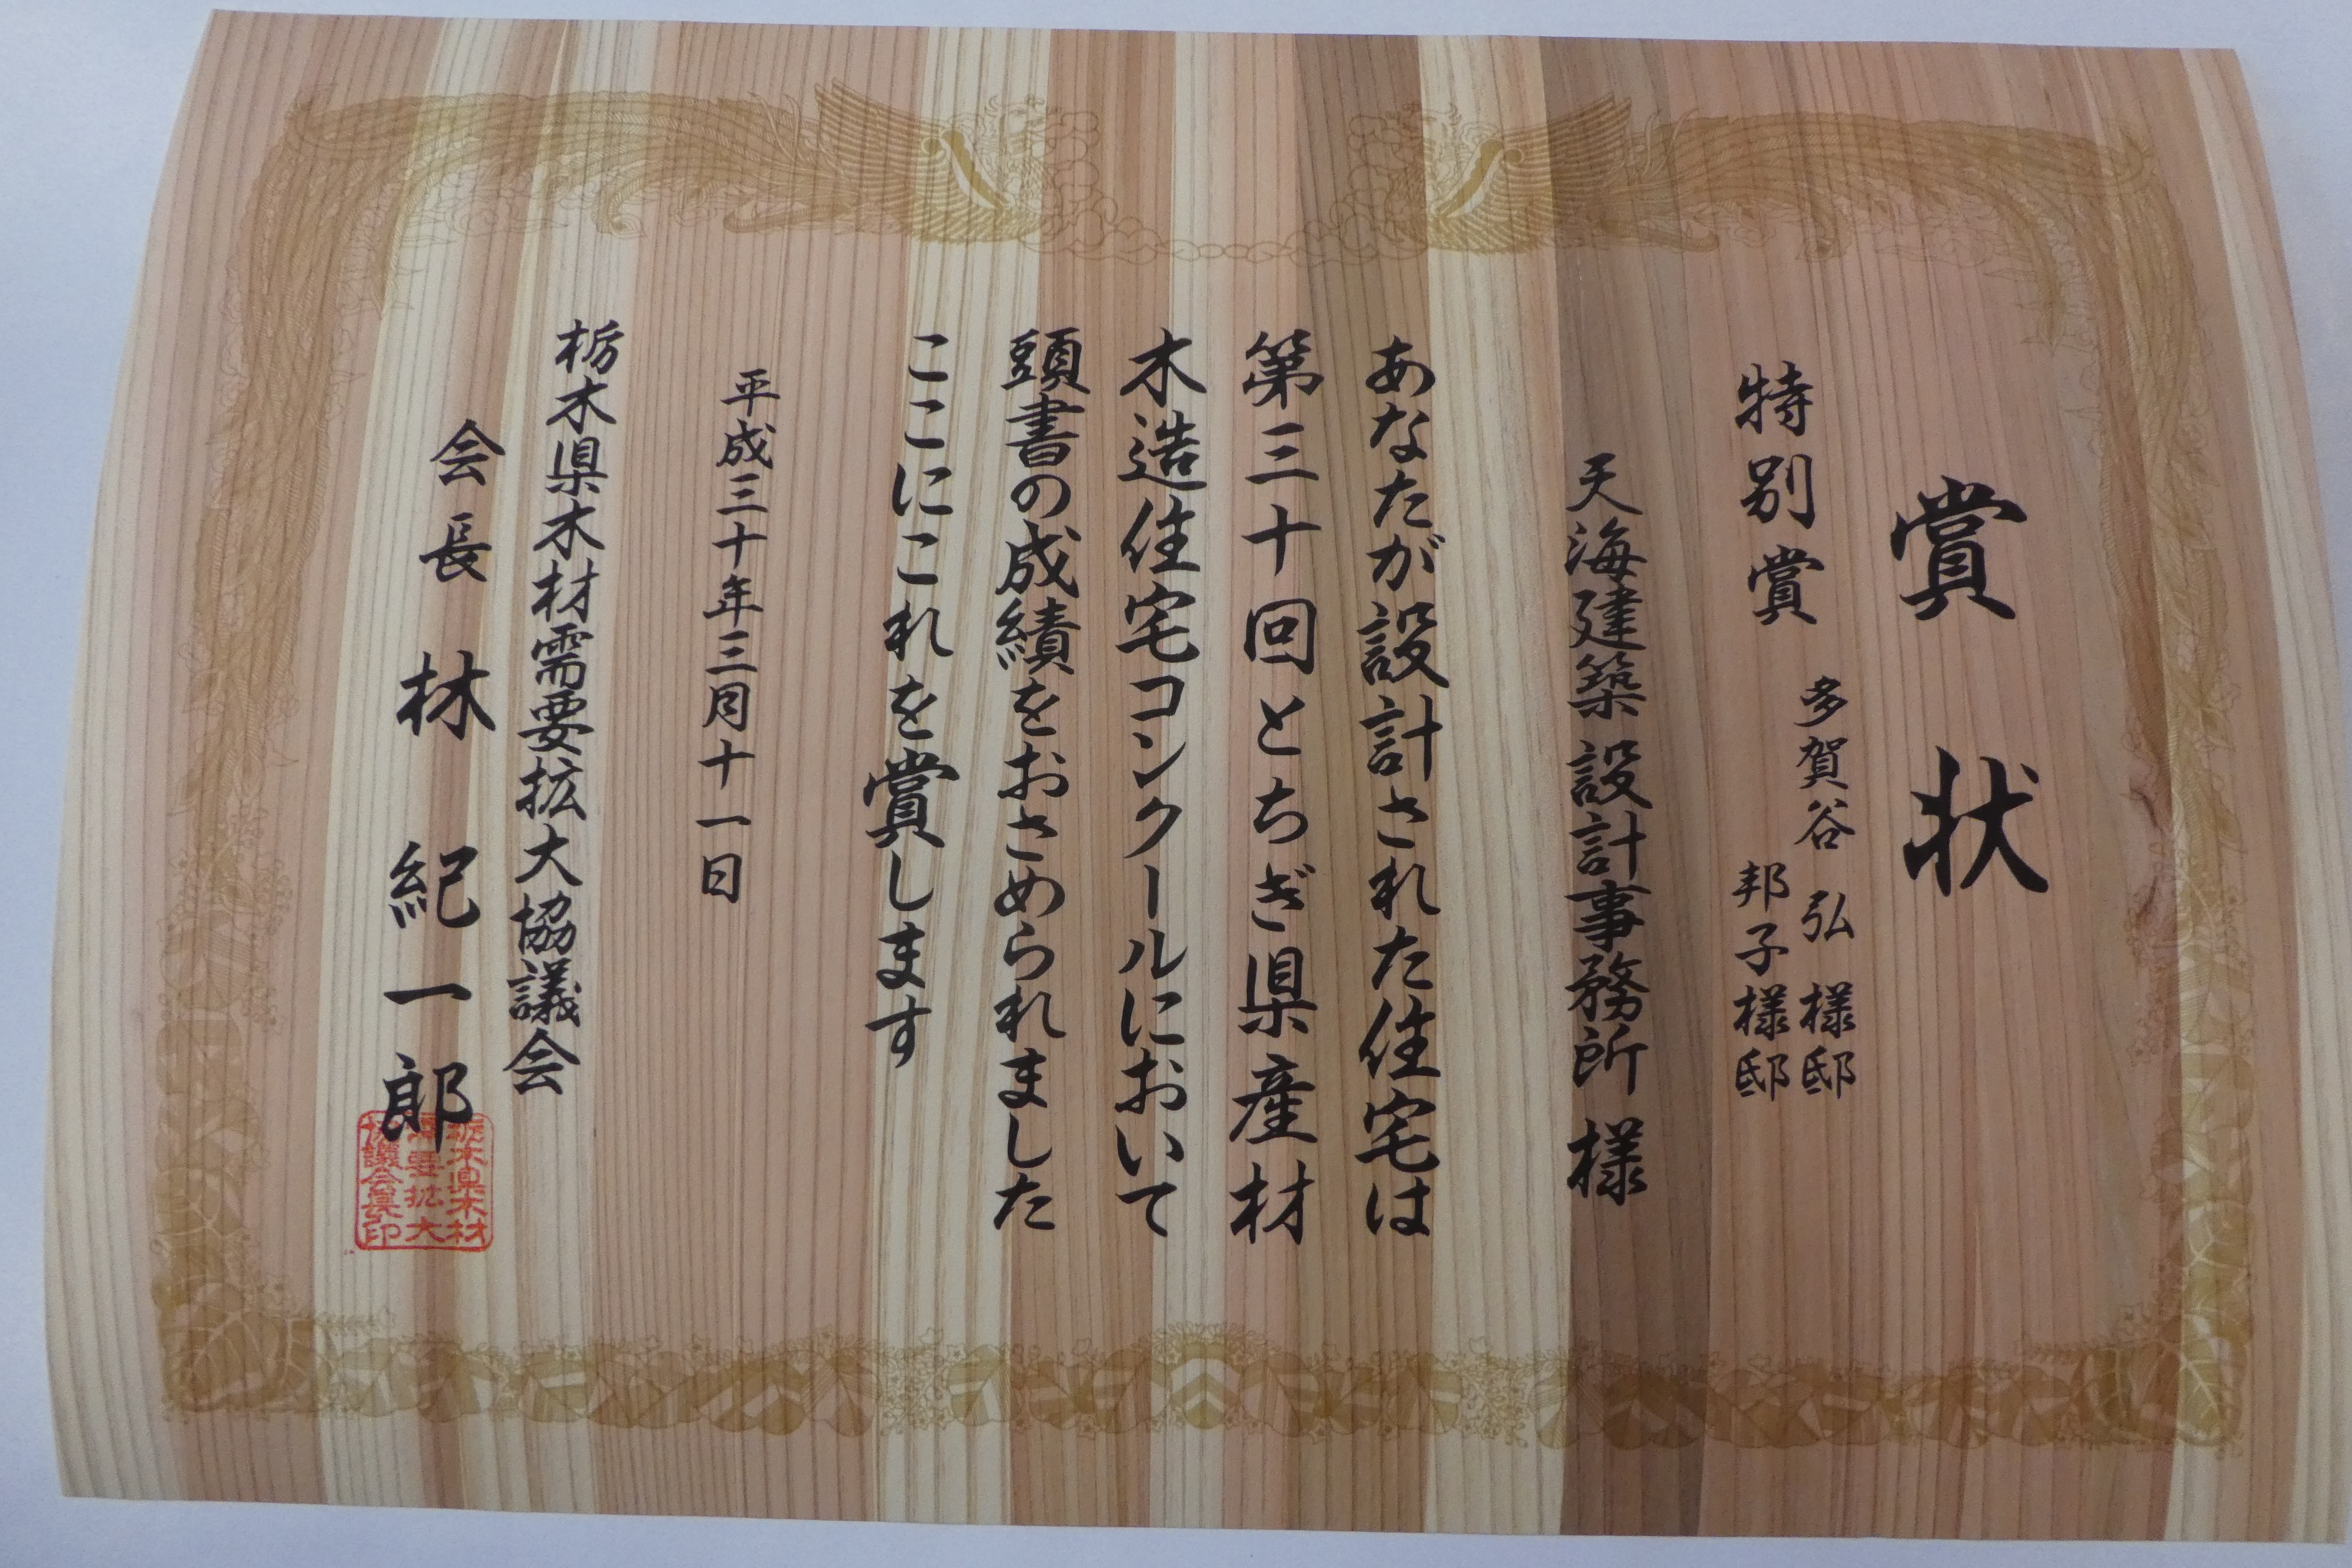 賞状
特別賞
多賀谷 弘 様邸
邦子様邸
天海建築設計事務所 様
あなたが設計された住宅は
第三十回とちぎ県産材
木造住宅コンクールにおいて
頭書の成績をおさめられました
ここにこれを賞します
平成三十年三月十一日
栃木県木材需要拡大協議会
会長 林 紀一郎
栃木県木材
需要拡大
協議会長印